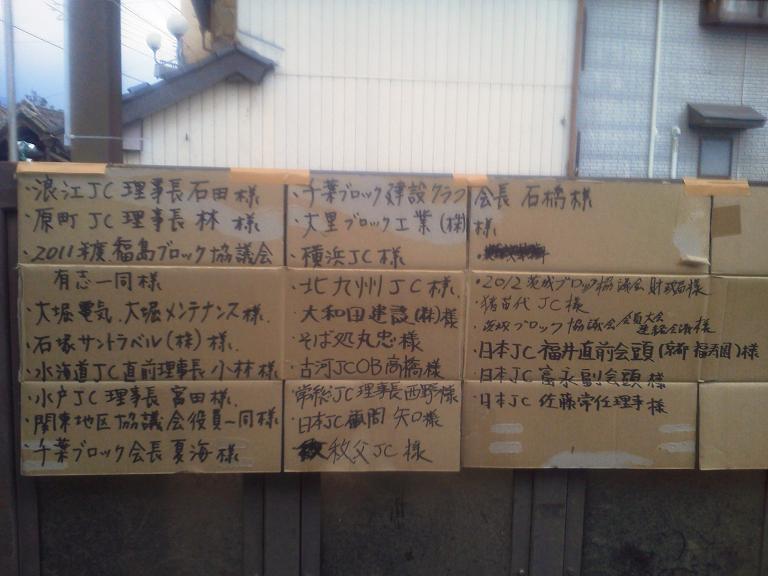 ・浪江JC理事長石田様
・原町JC理事長林様
・2011年度福島ブロック協議会
有志一同様
・大堀電気、大堀メンテナンス様
・石塚サントラベル(株)様
・水海道JC直前理事長小林様
・水戸JC理事長宮田様
・関東地区協議会役員一同様
・千葉ブロック会長夏海様
・千葉ブロック建設クラブ会長石橋様
・大里ブロック工業(株)様
・横浜JC様
・北九州JC様
・大和田建設(株)様
・そば処丸忠様
・古河JCOB高橋様
常総JC理事長西野様
・日本JC顧問矢口様
秩父JC様
・2012茨城ブロック協議会財政局様
・猪苗代JC様
・茨城ブロック協議会会員大会
連絡会議様
・日本JC福井直前会頭様
・日本JC富永副会頭様
・日本JC佐藤常任理事様